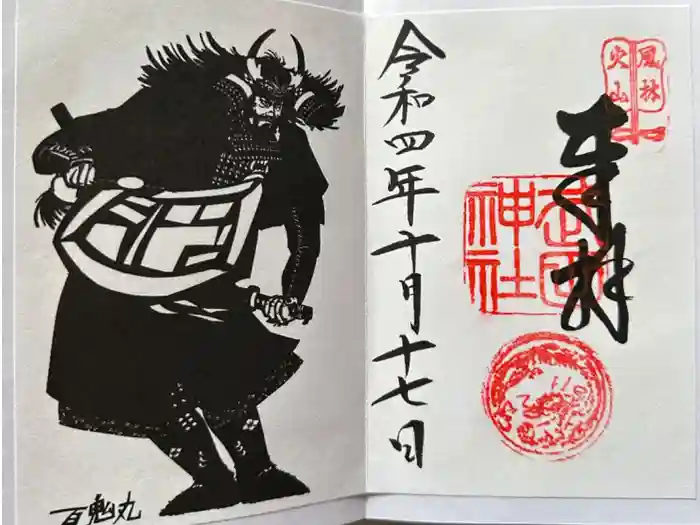 風林
火山
奉拝
武田
神社
令和四年十月十七日
百鬼丸